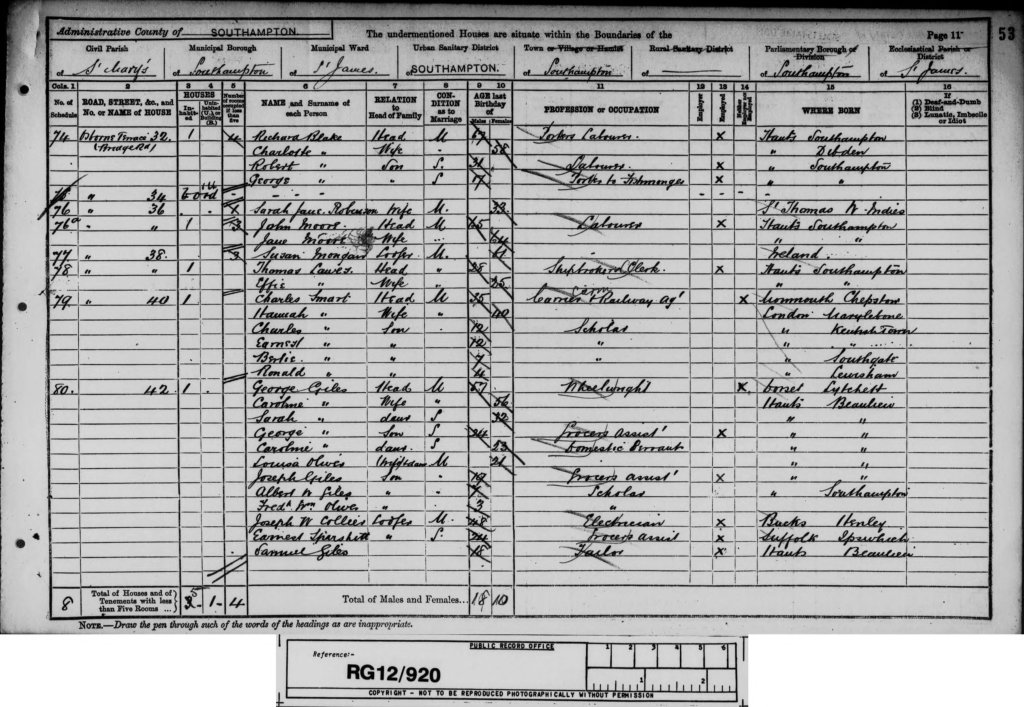 Administrative County of SOUTHAMPTON The undermentioned Houses are situate within the Boundaries of the Page 11 53
Civil Parish Municipal Borough Municipal Ward Urban Sanitary District Town or Village or Hamlet Rural Sanitary District Parliamentary Borough or Division Ecclesiastical Parish or District
of St Mary's of Southampton of St James. of SOUTHAMPTON. of Southampton of of Southampton of St James.
Cols. 1 2 3 4 5 6 7 8 9 10 11 12 13 14 15 16
No. of Schedule ROAD, STREET, &c., and No. or NAME of HOUSE HOUSES Inhabited Uninhabited (U.) or Building (B.) Number of rooms occupied if less than five NAME and Surname of each Person RELATION to Head of Family CONDITION as to Marriage AGE last Birthday of Males Females PROFESSION or OCCUPATION Employer Employed Neither Employer nor Employed WHERE BORN If (1) Deaf-and-Dumb (2) Blind (3) Lunatic, Imbecile or Idiot
74 32. 1 4 Richard Blake Head M 67 Labourer X Hants Southampton
(Bridge Rd) Charlotte " Wife " 58 " Dibden
Robert " Son S 31 Labourer X " Southampton
George " " S 17 to Fishmonger X " "
75 " 34
76 " 36 Sarah Jane Robinson Wife M. 33 St Thomas W Indies
76a " " 1 3 John Moore Head M 65 Labourer X Hants Southampton
Jane Moore Wife 64 " "
77 " 38. 3 Susan M. 61 Ireland
78 " 1 Thomas Lawes. Head " 28 Shipbrokers Clerk. X Hants Southampton
Effie " Wife " 25 " "
79 " 40 1 Charles Smart Head M 35 Carrier & Railway Agt X Monmouth Chepstow
Hannah " Wife " 40 London Marylebone
Charles " Son 12 Scholar " Kentish Town
Earnest " " 12 " " "
Bertie " " 7 " " Southgate
Ronald " " 4 " Lewisham
80. 42 1 George Giles Head M 57 Wheelwright X Dorset Lytchett
Caroline " Wife " 56 Hants Beaulieu
Sarah " daur S 32 " "
George " Son S 24 Grocers Assist X " "
Caroline " daur. S 23 Domestic Servant " "
Louisa Olives M 21 " "
Joseph Giles Son 19 Grocers assist X " "
Albert W Giles " 7 Scholar " Southampton
Fredk Wm Olives " 3 "
Joseph W Collier Lodger M. 48 Electrician X Bucks Henley
Earnest " S. 24 Grocers assist X Suffolk Ipswich
Samuel Giles 18 Tailor X Hants Beaulieu
8 Total of Houses and of Tenements with less than Five Rooms ... 1 4 Total of Males and Females... 18 10
NOTE.—Draw the pen through such of the words of the headings as are inappropriate.
PUBLIC RECORD OFFICE 1 2 3 4 5 6
Reference:-
RG12/920 1 2
COPYRIGHT - NOT TO BE REPRODUCED PHOTOGRAPHICALLY WITHOUT PERMISSION